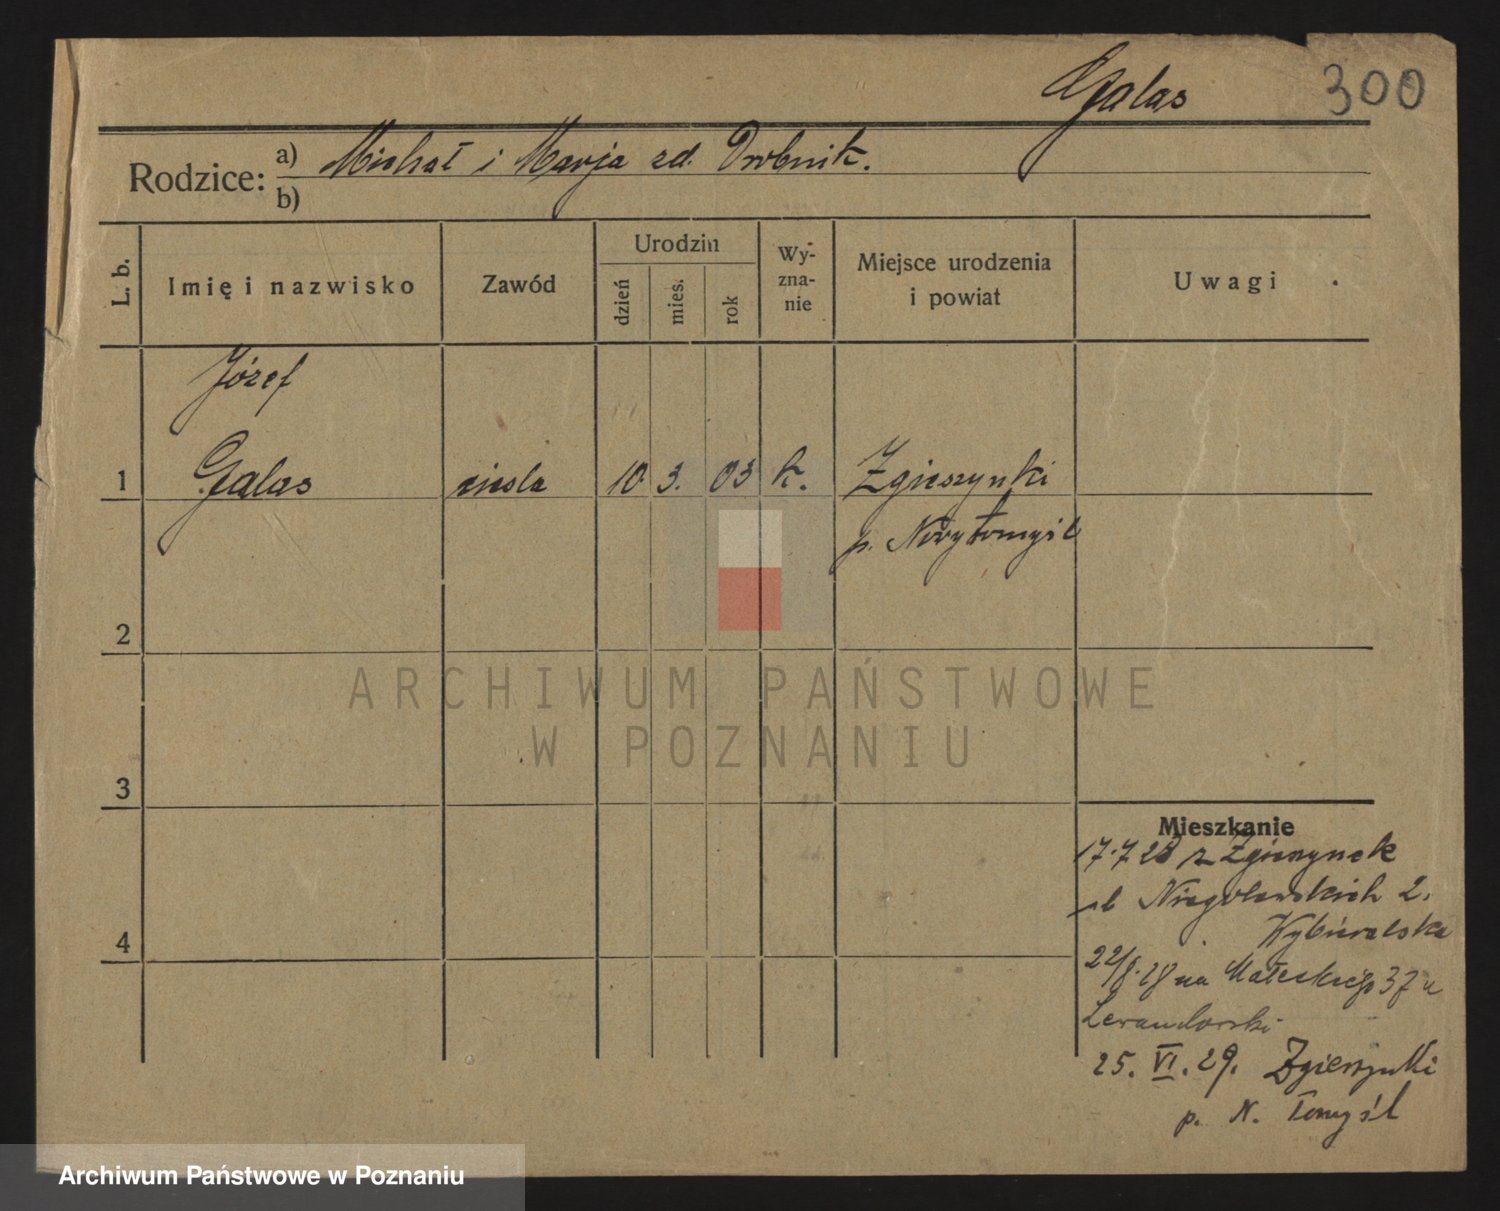 Galas 300
Rodzice: a) Michał i Marja zd. Drobnik.
b)
L. b. Imię i nazwisko Zawód Urodzin dzień mies. rok Wyznanie Miejsce urodzenia i powiat Uwagi
Józef
1 Galas ciesla 10. 3. 03 k. Zgierzynki
p. Nowytomyśl
2
ARCHIWUM PAŃSTWOWE
W POZNANIU
3
Mieszkanie
17.7 28 z Zgierzynek
ul Niegolewskich 2.
4
22/8.28 na Małeckiego 37 u
Lewandowski
25. VI. 29. Zgierzynki
p. N. Tomyśl
Archiwum Państwowe w Poznaniu